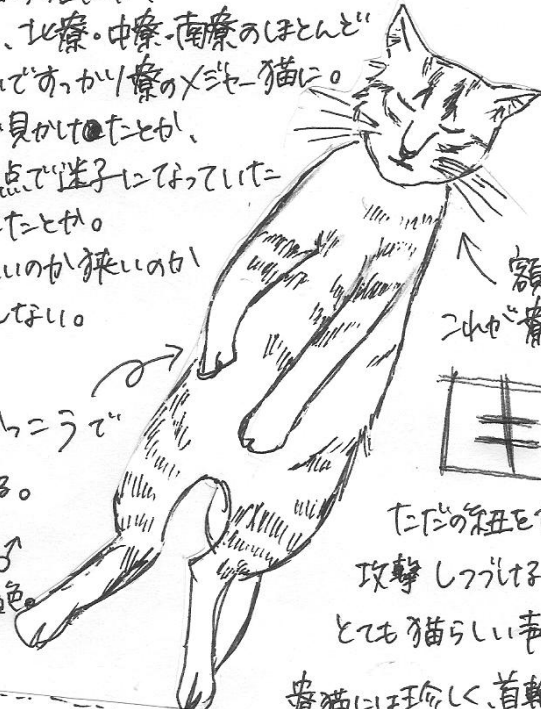 、北寮・中寮・南寮のほとんど
ですっかり寮のメジャー猫に。
見かけたとか、
点で迷子になっていた
たとか。
いのか狭いのか
しない。
っこうで
る。
♂
色。
額
これが寮
ただの紐を
攻撃しつづける
とても猫らしい声
寮猫には珍しく、首輪